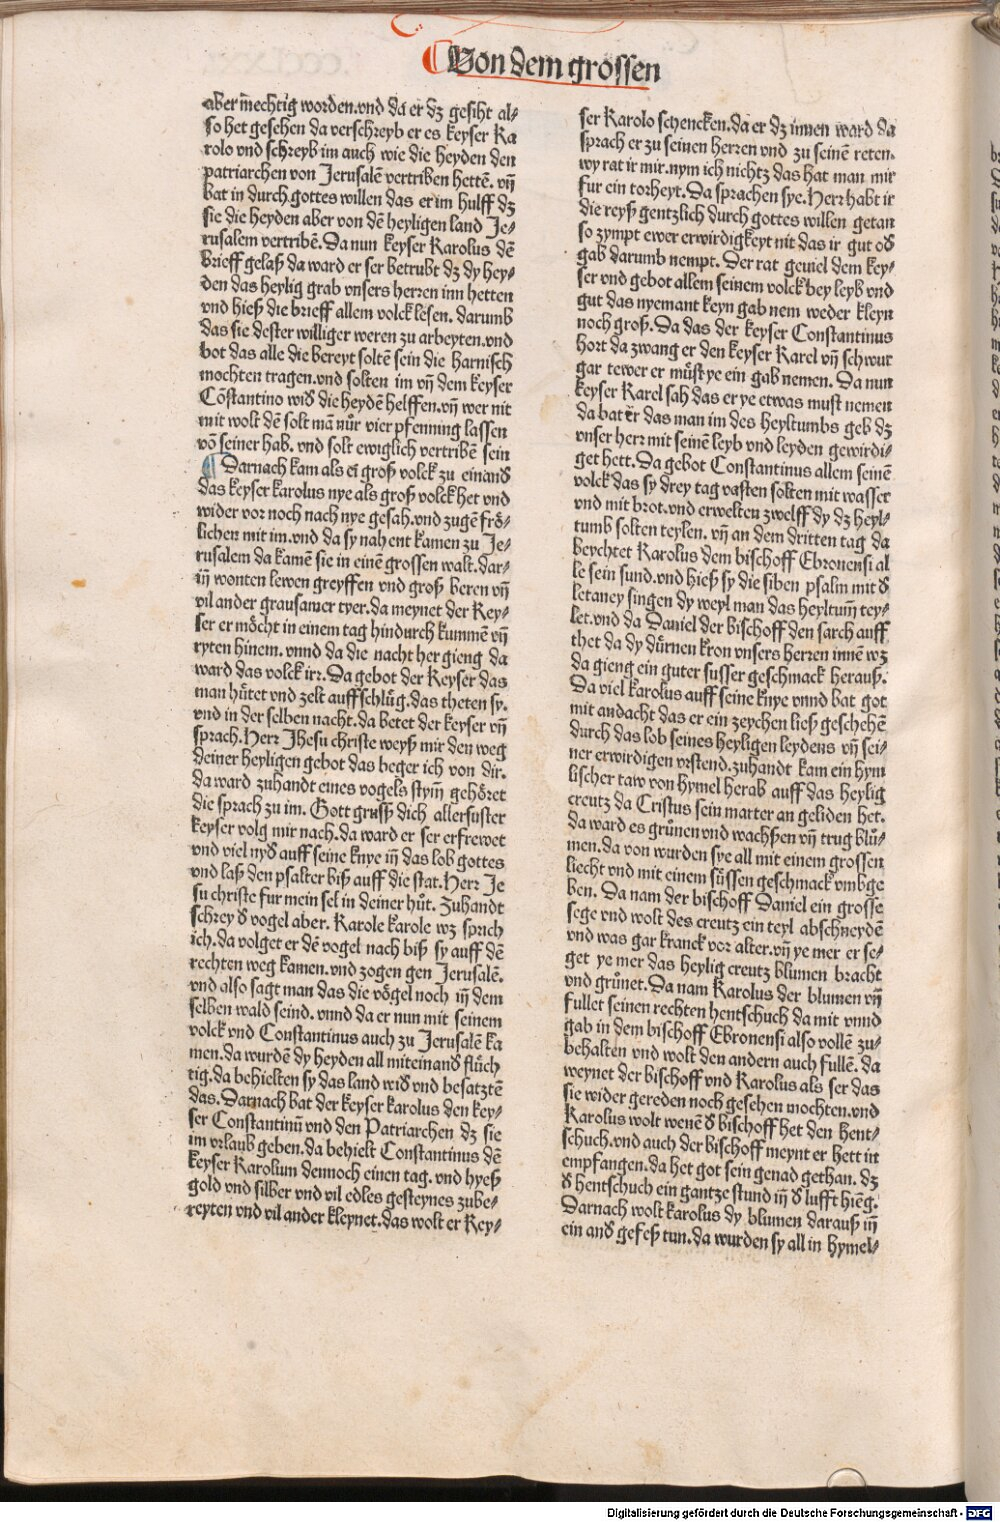 Von dem grossen
aber mechtig worden.vnd da er dz gesiht al-
so het gesehen da verschreyb er es keyser Ka
rolo vnd schreyb im auch wie die heyden den
patriarchen von Jerusalē vertriben hettē. vn̄
bat in durch gottes willen das er im hulff dz
sie die heyden aber von dē heyligen land Je-
rusalem vertribē. Da nun keyser Karolus dē
brieff gelaß da ward er ser betrubt dz dy hey-
den das heylig grab vnsers herren inn hetten
vnd hieß die brieff allem volck lesen. darumb
das sie dester williger weren zu arbeyten.vnd
bot das alle die bereyt soltē sein die harnisch
mochten tragen.vnd solten im vn̄ dem keyser
Cōstantino wid̄ die heydē helffen.vn̄ wer nit
mit wolt dē solt mā nůr vier pfenning lassen
vō seiner hab. vnd solt ewiglich vertribē sein
Darnach kam als ei groß volck zu einand̄
das keyser karolus nye als groß volck het vnd
wider vor noch nach nye gesah.vnd zugē frö-
lichen mit im.vnd da sy nahent kamen zu Je-
rusalem da kamē sie in einē grossen walt.dar-
in̄ wonten lewen greyffen vnd groß beren vn̄
vil ander grausamer tyer.da meynet der Key-
ser er möcht in einem tag hindurch kummē vn̄
ryten hinein. vnnd da die nacht her gieng da
ward das volck irr. Da gebot der Keyser das
man hůtet vnd zelt auff schlůg.das theten sy.
vnd in der selben nacht.da betet der keyser vn̄
sprach.Herr Jhesu christe weyß mir den weg
deiner heyligen gebot das beger ich von dir.
da ward zuhandt eines vogels stym̄ gehöret
die sprach zu im. Gott gruß dich allersuster
keyser volg mir nach.da ward er ser erfrewet
vnd viel nyd̄ auff seine knye in̄ das lob gottes
vnd laß den psalter biß auff die stat.Herr Je
su christe fur mein sel in deiner hůt. Zuhandt
schrey d̄ vogel aber. Karole karole wz sprich
ich.da volget er dē vogel nach biß sy auff dē
rechten weg kamen.vnd zogen gen Jerusalē.
vnd also sagt man das die vögel noch in̄ dem
selben wald seind. vnnd da er nun mit seinem
volck vnd Constantinus auch zu Jerusalē ka
men.da wurdē dy heyden all miteinand̄ flůch
tig.da behielten sy das land wid̄ vnd besatztē
das. Darnach bat der keyser karolus den key-
ser Constantinū vnd den Patriarchen dz sie
im vrlaub geben.da behielt Constantinus dē
keyser Karolum dennoch einen tag. vnd hyeß
gold vnd silber vnd vil edles gesteynes zube-
reyten vnd vil ander kleynet.das wolt er Key-
ser Karolo schencken.da er dz innen ward da
sprach er zu seinen herren vnd zu seinē reten.
wy rat ir mir.nym ich nichtz das hat man mir
fur ein torheyt.Da sprachen sye.Herr habt ir
die reyß gentzlich durch gottes willen getan
so zympt ewer erwirdigkeyt nit das ir gut od̄
gab darumb nempt. Der rat geuiel dem key-
ser vnd gebot allem seinem volck bey leyb vnd
gut das nyemant keyn gab nem weder kleyn
noch groß. Da das der keyser Constantinus
hort da zwang er den keyser Karel vn̄ schwur
gar tewer er můst ye ein gab nemen. Da nun
keyser Karel sah das er ye etwas must nemen
da bat er das man im des heyltumbs geb dz
vnser herr mit seinē leyb vnd leyden gewirdi-
get hett. Da gebot Constantinus allem seinē
volck das sy drey tag vasten solten mit wasser
vnd mit brot.vnd erwelten zwelff dy dz heyl-
tumb solten teylen. vn̄ an dem dritten tag da
beychtet Karolus dem bischoff Ebronensi al
le sein sund.vnd hieß sy die siben psalm mit d̄
letaney singen dy weyl man das heyltum̄ tey-
let.vnd da Daniel der bischoff den sarch auff
thet da dy důrnen kron vnsers herren innē wz
da gieng ein guter susser geschmack herauß.
Da viel karolus auff seine knye vnnd bat got
mit andacht das er ein zeychen ließ geschehē
durch das lob seines heyligen leydens vn̄ sei-
ner erwirdigen vrstend.zuhandt kam ein hym
lischer taw von hymel herab auff das heylig
creutz da Cristus sein marter an geliden het.
da ward es grůnen vnd wachßen vn̄ trug blů-
men.da von wurden sye all mit einem grossen
liecht vnd mit einem sůssen geschmack vmbge
ben. Da nam der bischoff Daniel ein grosse
sege vnd wolt des creutz ein teyl abschneydē
vnd was gar kranck vor alter.vn̄ ye mer er se-
get ye mer das heylig creutz blumen bracht
vnd grůnet. Da nam Karolus der blumen vn̄
fullet seinen rechten hentschuch da mit vnnd
gab in dem bischoff Ebronensi also vollē zu-
behalten vnd wolt den andern auch fullē. da
weynet der bischoff vnd Karolus als ser das
sie wider gereden noch gesehen mochten.vnd
Karolus wolt wenē d̄ bischoff het den hent-
schuch.vnd auch der bischoff meynt er hett in
empfangen.da het got sein genad gethan. dz
d̄ hentschuch ein gantze stund in̄ d̄ lufft hiēg.
Darnach wolt karolus dy blumen darauß in̄
ein and̄ gefeß tun.da wurden sy all in hymel-
Digitalisierung gefördert durch die Deutsche Forschungsgemeinschaft - DFG